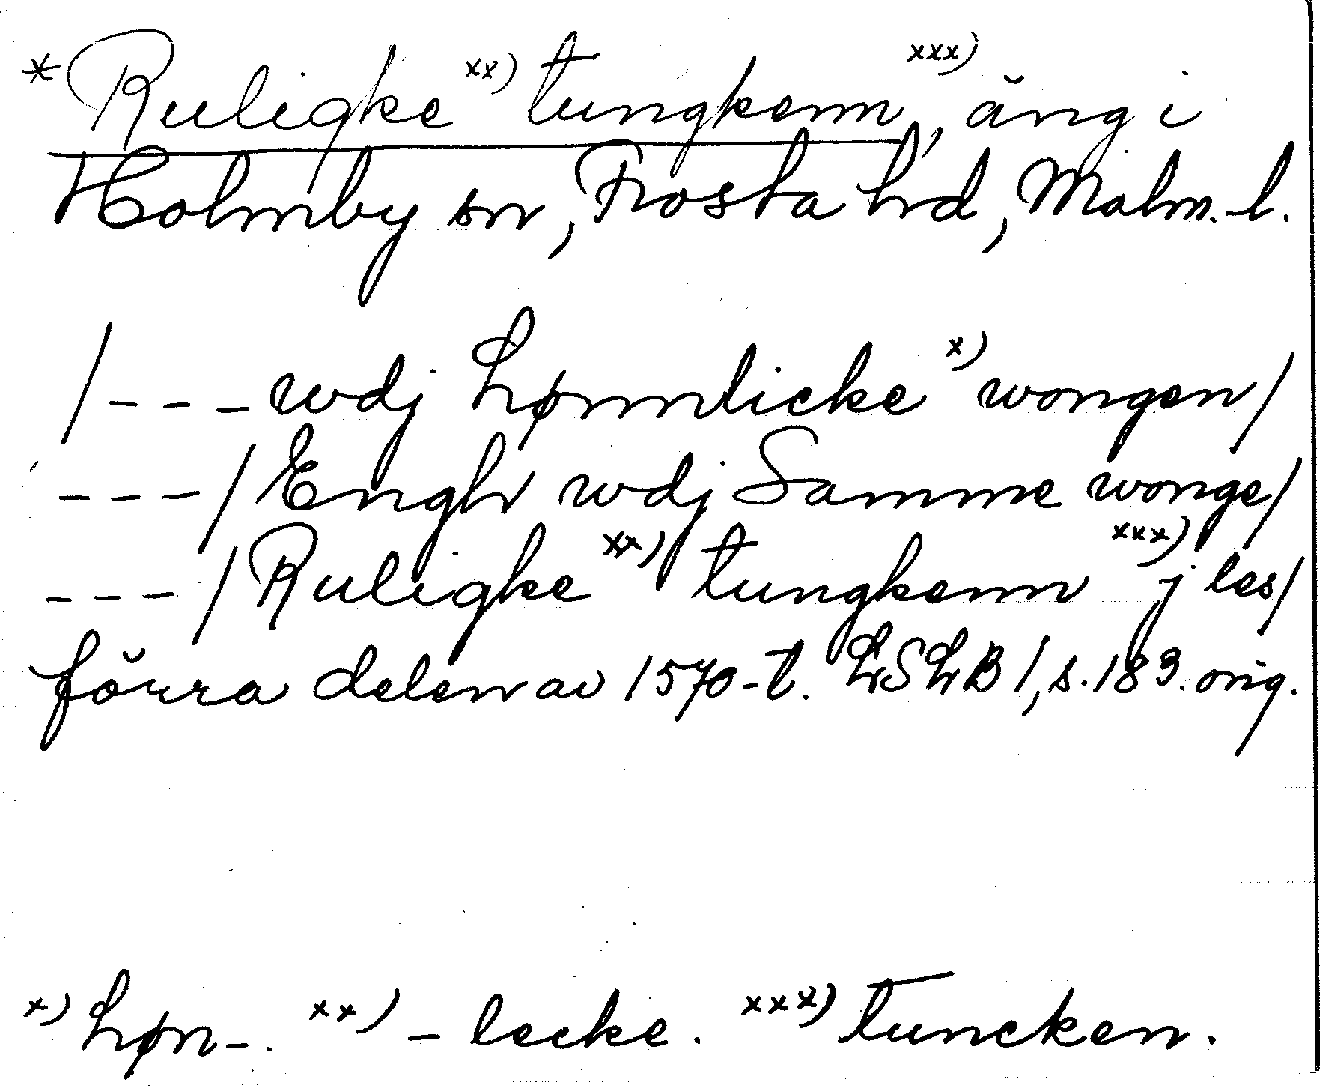 * Ruligke xx) tungkenn, xxx) äng i
Holmby sn, Frosta hd, Malm.-l.
/--- wdj hømnlicke x) wongen/
---/Engh wdj Samme wonge/
---/Ruligke xx) tungkenn xxx) j les/
förra delen av 1570-t. LSLB 1, s. 183. orig.
x) høn-. xx) -lecke. xxx) tuncken.